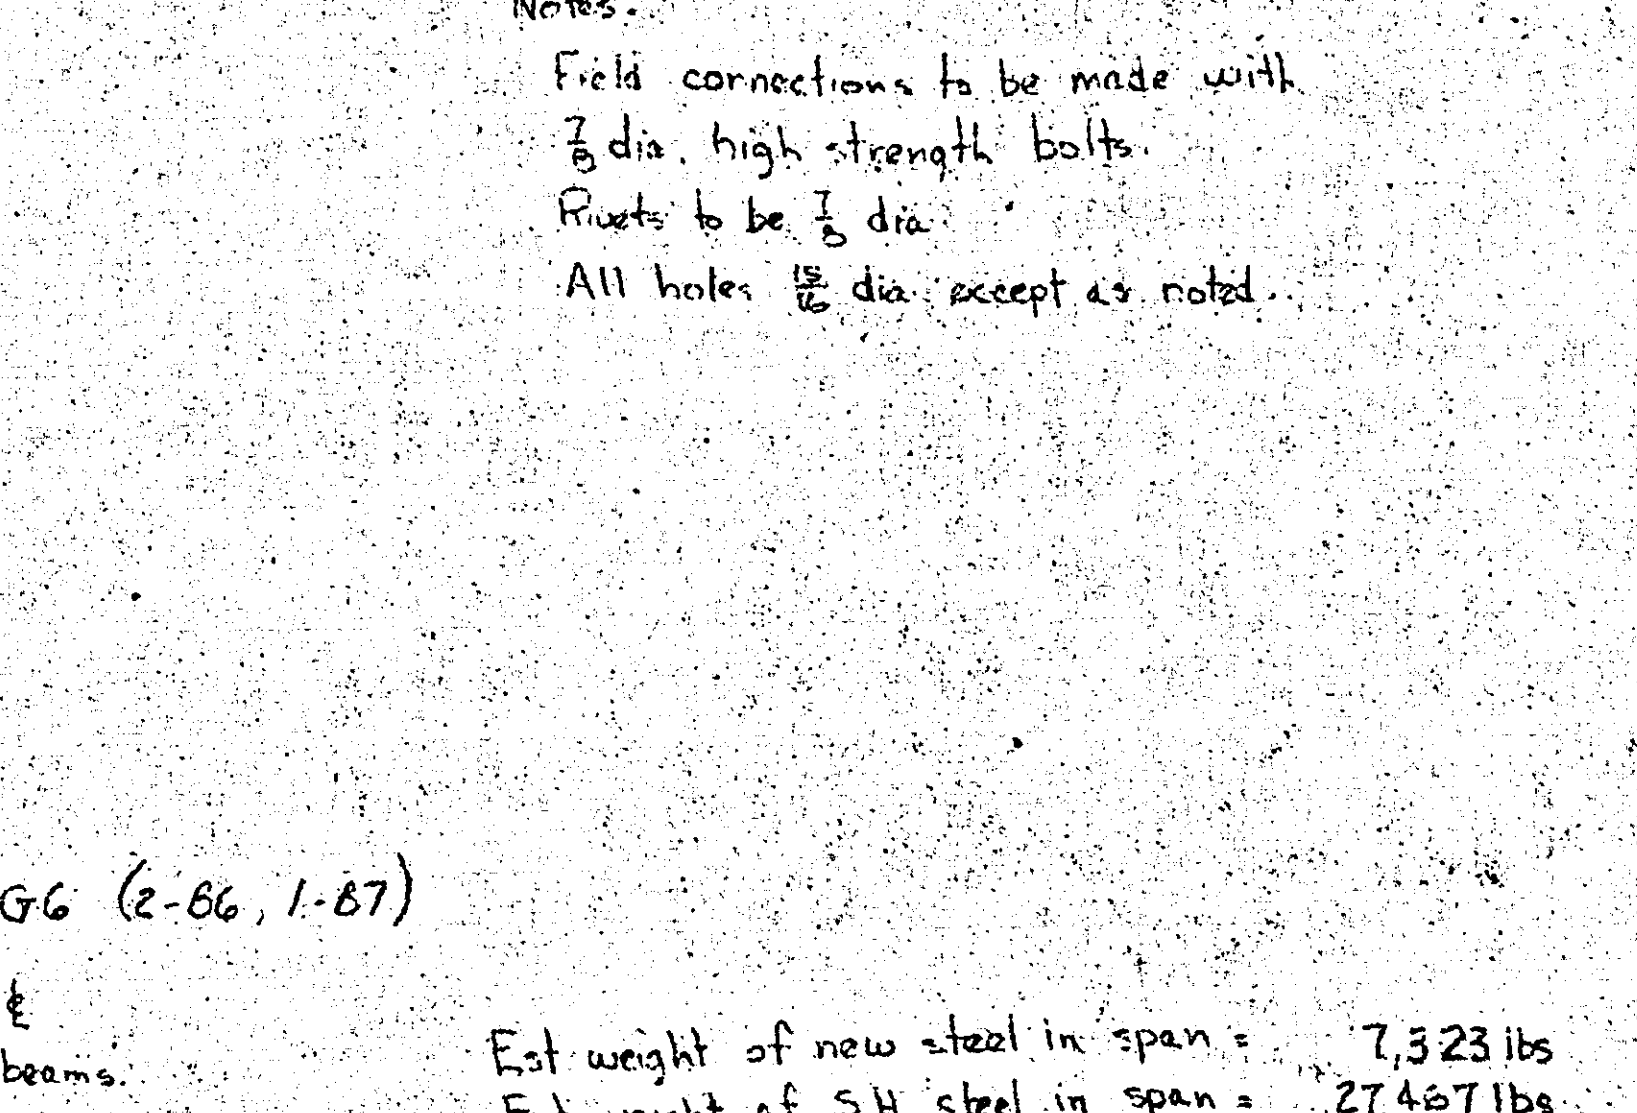 Notes.
Field connections to be made with
7/8 dia. high strength bolts.
Rivets to be 7/8 dia.
All holes 15/16 dia. except as noted.
G6 (2-B6, 1-B7)
℄
beams.
Est weight of new steel in span = 7,323 lbs
Est weight of S.H. steel in span = lbs.